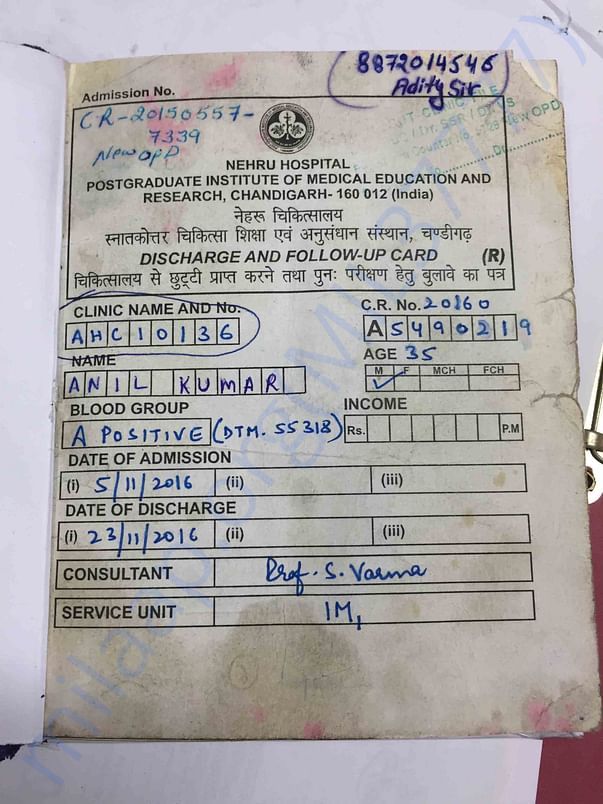 8872014546
Adity Sir
Admission No.
CR-20150557-
7339
New OPD
NEHRU HOSPITAL
POSTGRADUATE INSTITUTE OF MEDICAL EDUCATION AND
RESEARCH, CHANDIGARH- 160 012 (India)
नेहरू चिकित्सालय
स्नातकोत्तर चिकित्सा शिक्षा एवं अनुसंधान संस्थान, चण्डीगढ़
DISCHARGE AND FOLLOW-UP CARD (R)
चिकित्सालय से छुट्टी प्राप्त करने तथा पुनः परीक्षण हेतु बुलावे का पत्र
CLINIC NAME AND No. C.R. No. 20160
AHC10136 A5490219
NAME AGE 35
ANIL KUMAR M F MCH FCH
BLOOD GROUP INCOME
A POSITIVE (DTM. 55318) Rs. P.M
DATE OF ADMISSION
(i) 5/11/2016 (ii) (iii)
DATE OF DISCHARGE
(i) 23/11/2016 (ii) (iii)
CONSULTANT Prof. S. Varma
SERVICE UNIT IM1